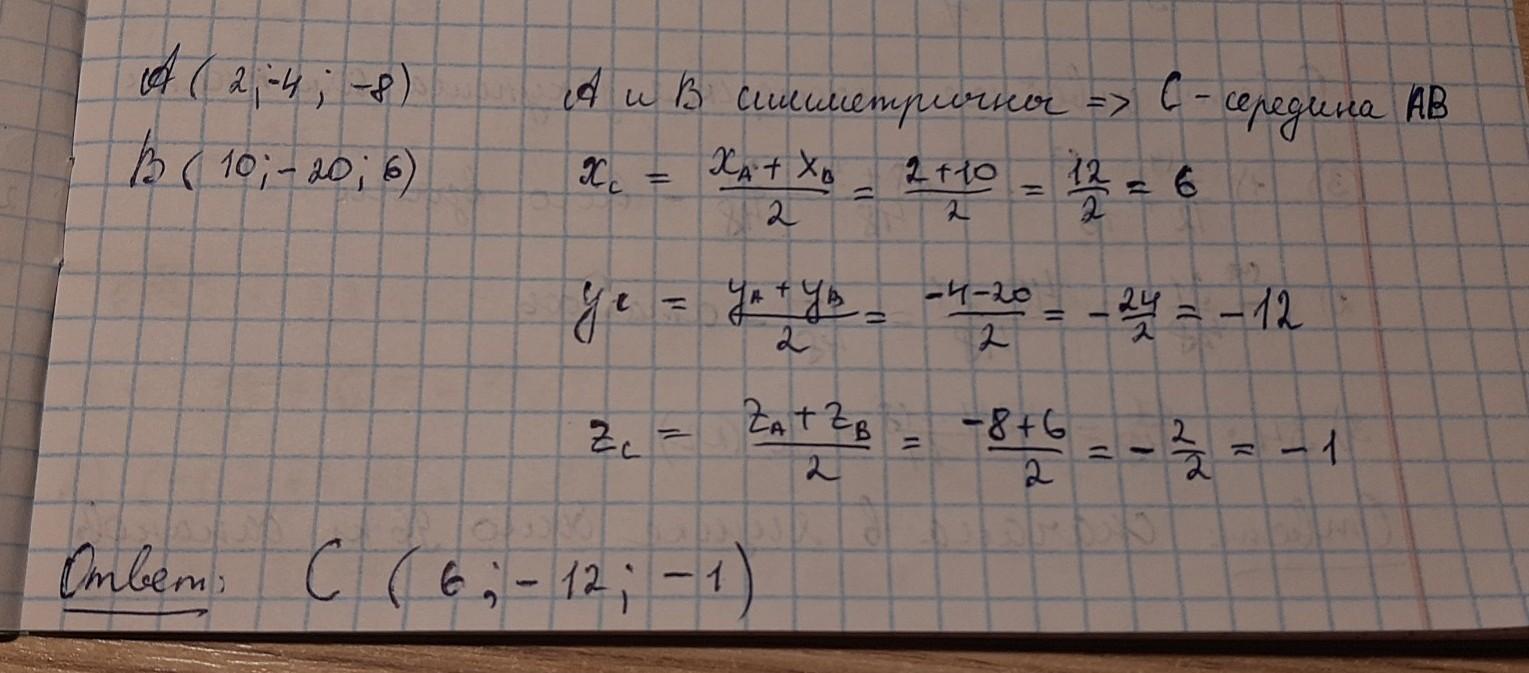 A ( 2 ; -4 ; -8) A и B симметричны => C - середина AB
B ( 10 ; - 20 ; 6) x_C = (x_A + x_B)/2 = (2+10)/2 = 12/2 = 6
y_C = (y_A + y_B)/2 = (-4-20)/2 = - 24/2 = - 12
z_C = (z_A + z_B)/2 = (-8+6)/2 = - 2/2 = - 1
Ответ: C ( 6 ; - 12 ; - 1)